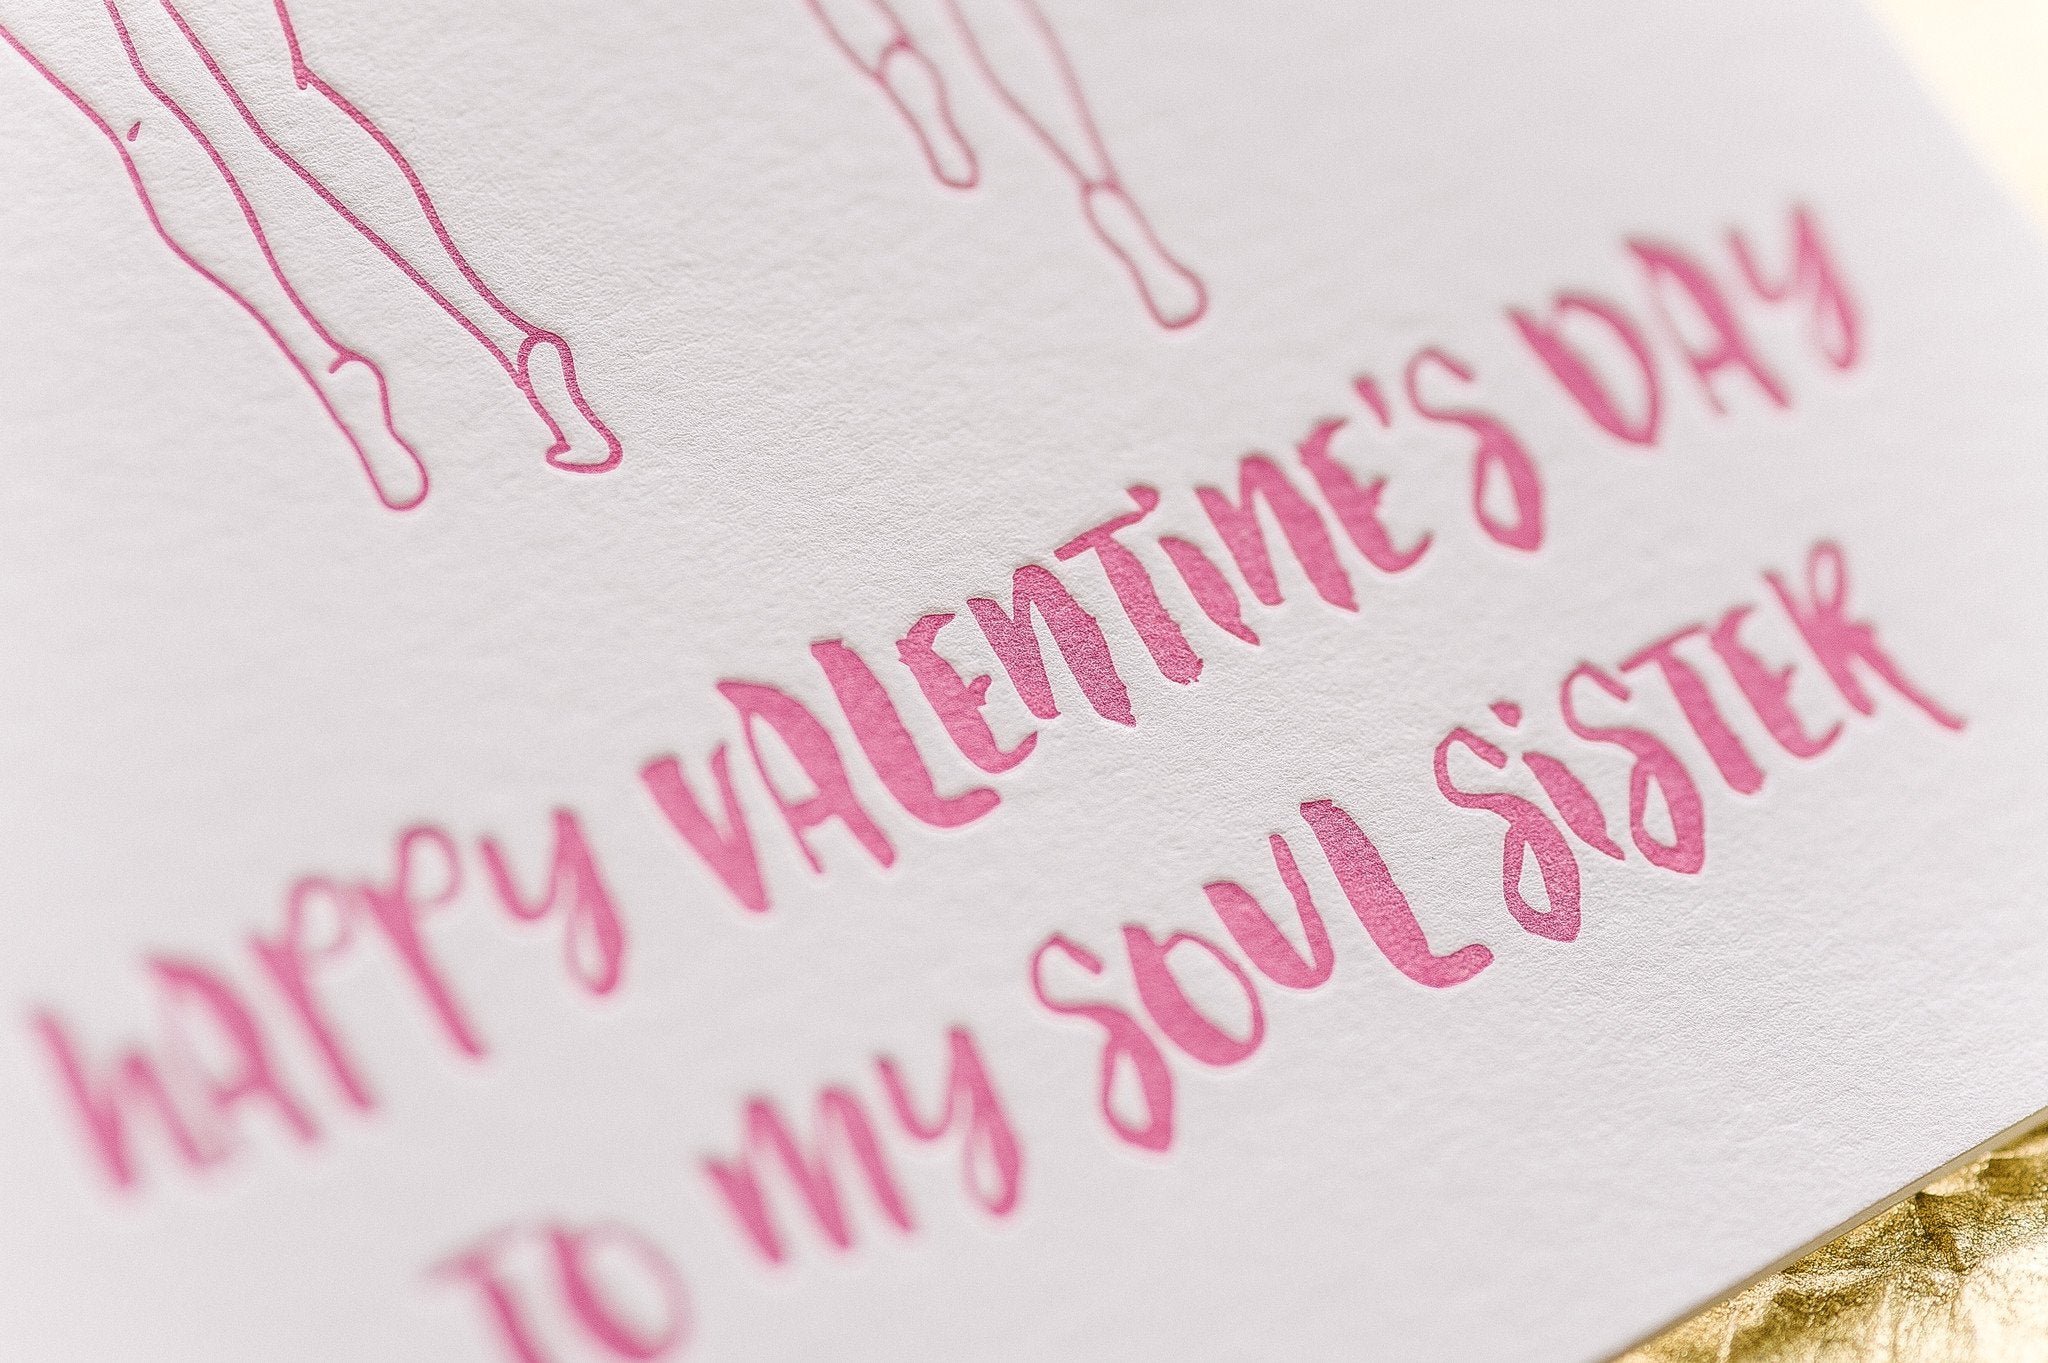 hAPPY VALENTINE'S DAY
TO MY SOUL SISTER